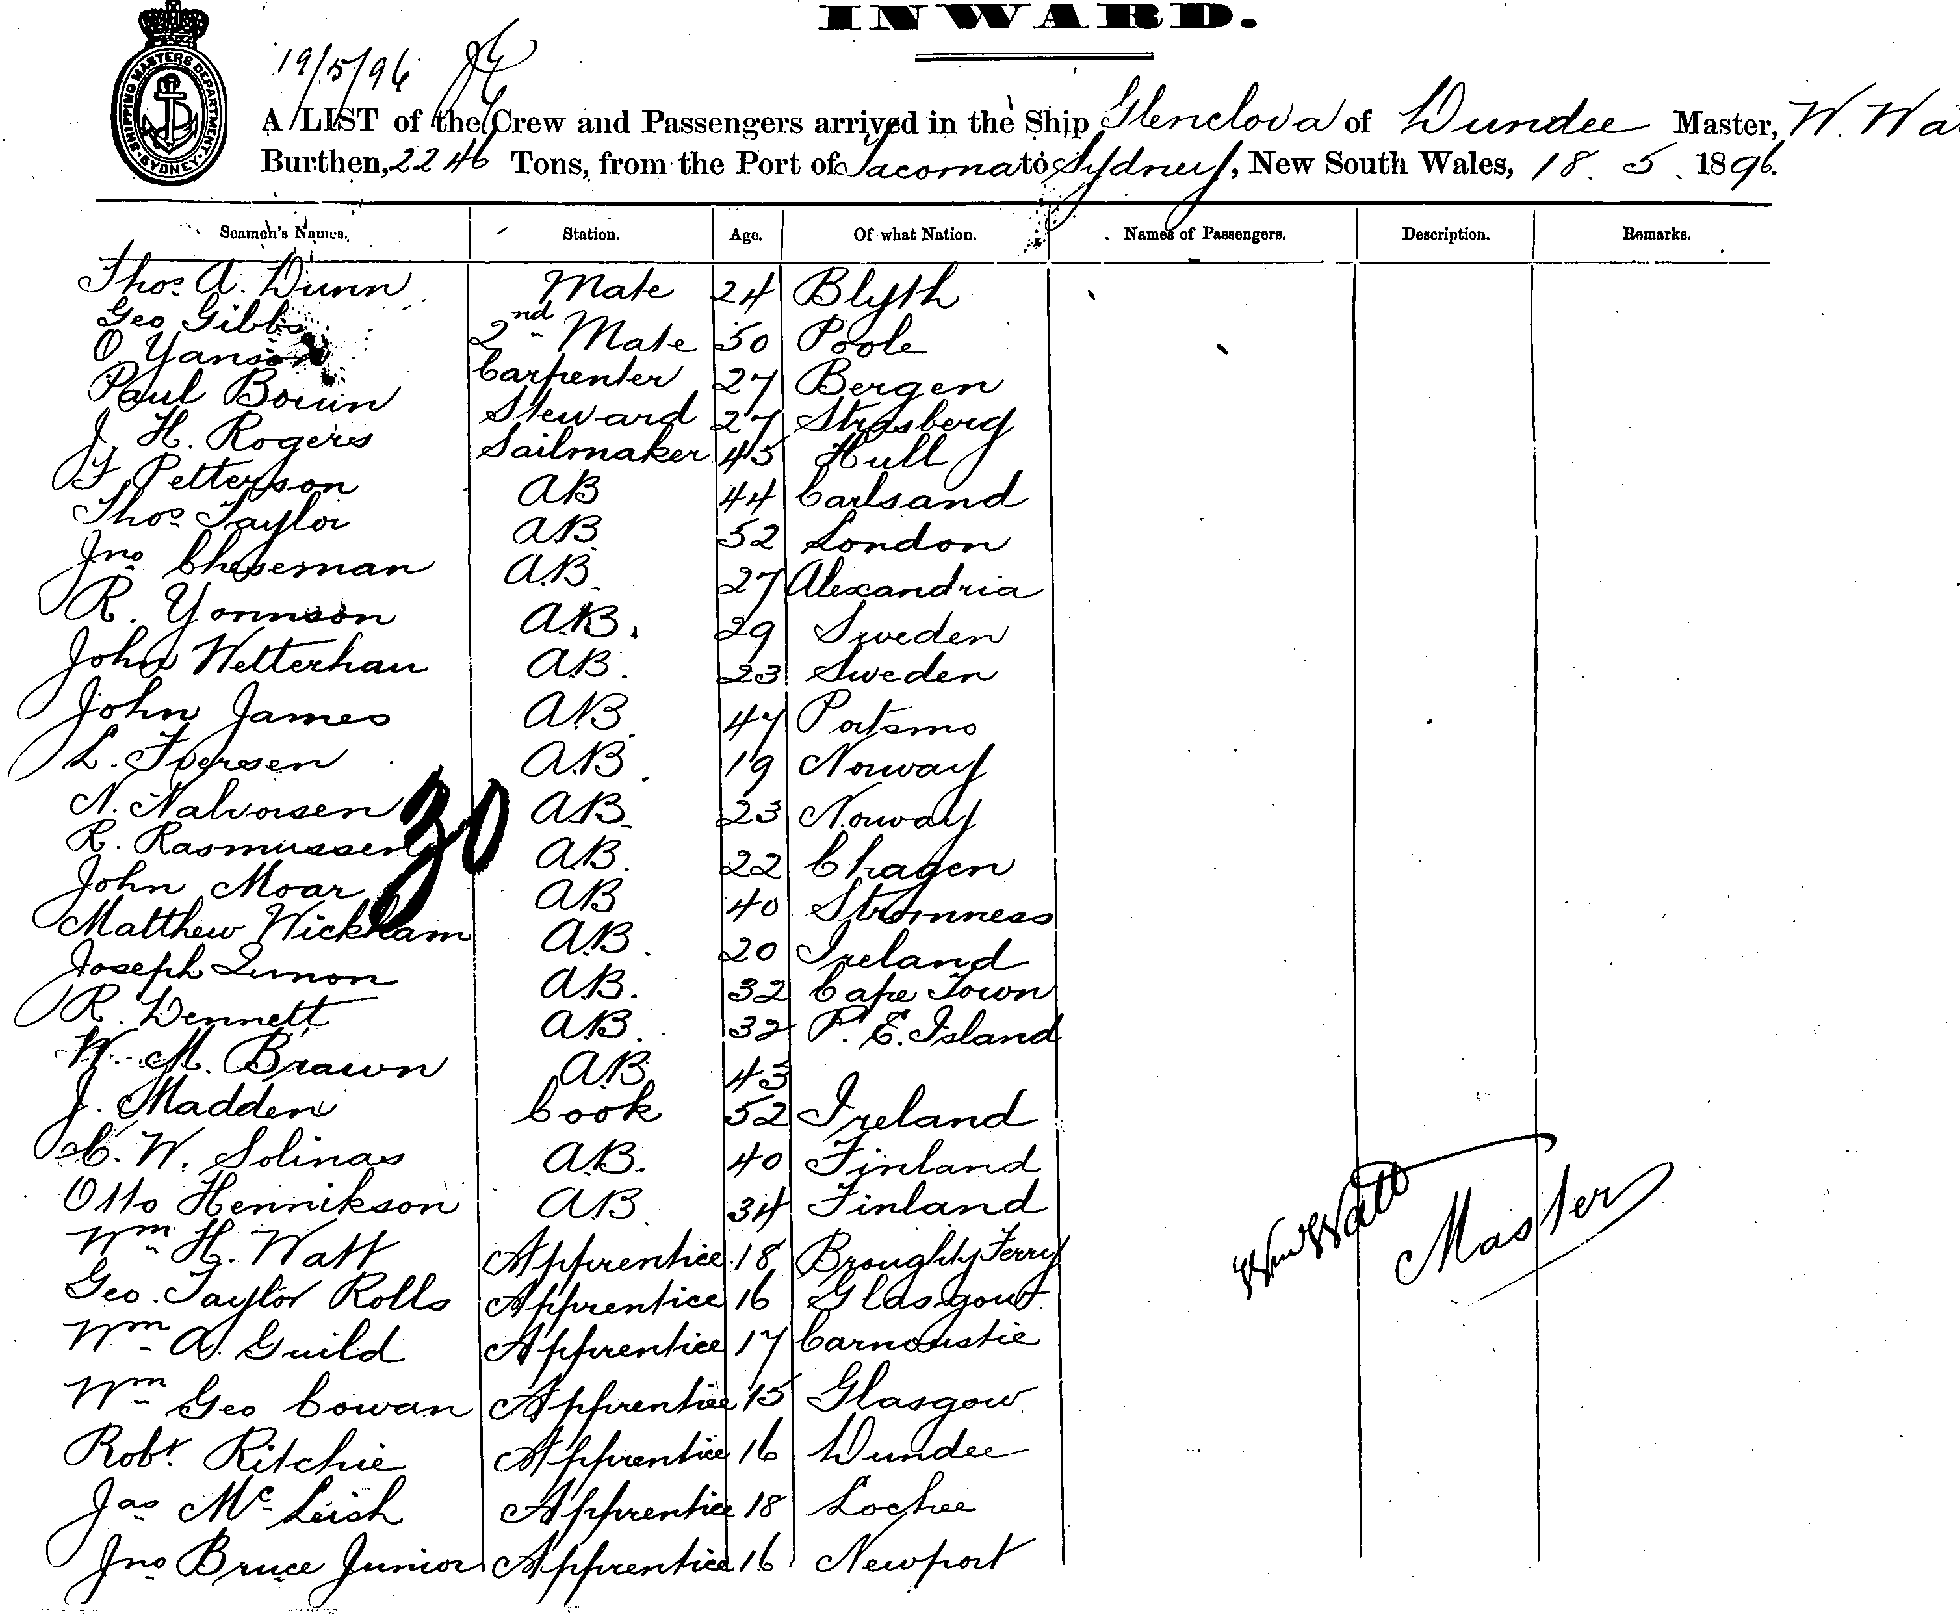 INWARD.
19/5/96
SHIPPING MASTERS DEPARTMENT SYDNEY
A LIST of the Crew and Passengers arrived in the Ship Glenclova of Dundee Master, W. Wa
Burthen, 2246 Tons, from the Port of Tacoma to Sydney, New South Wales, 18. 5. 1896.
Seamen's Names. Station. Age. Of what Nation. Names of Passengers. Description. Remarks.
Thos. A. Dunn Mate 24 Blyth
Geo Gibbs 2nd Mate 50 Poole
O Yanson Carpenter 27 Bergen
Paul Steward 27 Strasberg
J. H. Rogers Sailmaker 45 Hull
F Petterson AB 44 Carlsand
Thos. Taylor AB 52 London
Jno Cheseman AB. 27 Alexandria
R. Yonnson AB. 29 Sweden
John Wetterhau AB. 23 Sweden
John James AB. 47 Portsmo
L. Iversen AB. 19 Norway
N. Nalvorsen AB. 23 Norway
R. Rasmussen AB. 22 Chagen
30
John Moar AB 40 Stromness
Matthew Wickham AB. 20 Ireland
Joseph AB. 32 Cape Town
R. Dennett AB. 32 P. E. Island
W. M. Brawn AB 43
J. Madden Cook 52 Ireland
C. W. Solinas AB. 40 Finland
Otto Hennikson AB 34 Finland
Wm H. Watt Apprentice 18 Broughty Ferry
Geo. Taylor Rolls Apprentice 16 Glasgow
Wm A. Guild Apprentice 17 Carnoustie
Wm Geo Cowan Apprentice 15 Glasgow
Robt. Ritchie Apprentice 16 Dundee
Jas McLeish Apprentice 18 Lochee
Jno Bruce Junior Apprentice 16 Newport
Wm Watt Master